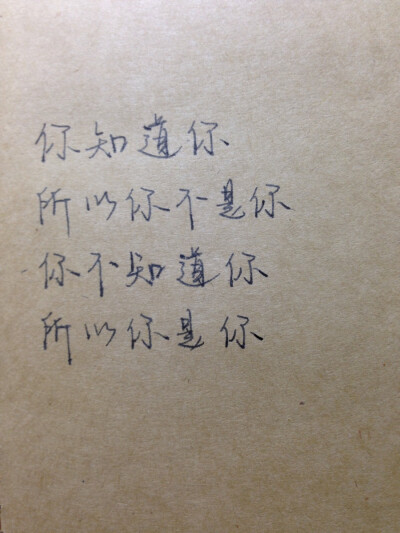 你知道你
所以你不是你
你不知道你
所以你是你